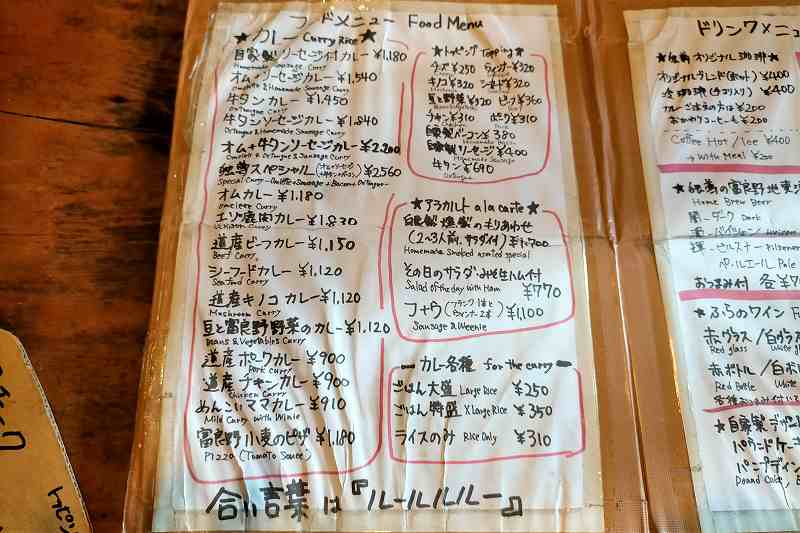 フードメニュー Food Menu
★カレー Curry Rice★
自家製ソーセージ付カレー ¥1,180
Homemade Sausage Curry
オム・ソーセージカレー ¥1,540
Omelett & Homemade Sausage Curry
牛タンカレー ¥1,450
OxTongue Curry
牛タンソーセージカレー ¥1,840
OxTongue & Homemade Sausage Curry
オム牛タンソーセージカレー ¥2,200
Omelett & OxTongue & Sausage Curry
唯我独尊スペシャル
¥2560
オムカレー ¥1,180
Omelett Curry
エゾ鹿肉カレー ¥1,830
Venison Curry
道産ビーフカレー ¥1,150
Beef Curry
シーフードカレー ¥1,120
Seafood Curry
道産キノコカレー ¥1,120
Mushroom Curry
豆と富良野野菜のカレー ¥1,120
Beans & Vegetables Curry
道産ポークカレー ¥900
Pork Curry
道産チキンカレー ¥900
Chicken Curry
めんこいママカレー ¥910
Mild Curry with Winie
富良野小麦のピザ ¥1,180
Pizza (Tomato Sauce)
合い言葉は『ルールルルー』
★トッピング Topping★
チーズ ¥250 ウィンナー ¥320
キノコ ¥320 シーフード ¥320
豆と野菜 ¥320 ビーフ ¥360
チキン ¥310 ポーク ¥310
自家製ベーコン ¥380
Homemade Bacon
自家製ソーセージ ¥400
Homemade Sausage
牛タン ¥690
OxTongue
★アラカルト a la carte★
自家製燻製のもりあわせ
(2~3人前、サラダ付) ¥1,700
Homemade Smoked assorted special
その日のサラダ・みそ生ハム付
Salad of the day with Ham ¥770
フ+ウ(フランク1本とウィンナー2本) ¥1,100
Sausage & Weenie
カレー各種 for the curry
ごはん大盛 Large Rice ¥250
ごはん特盛 X Large Rice ¥350
ライスのみ Rice Only ¥310
ドリンクメニュ
オリジナル珈琲★
オリジナルブレンド(ホット) ¥400
¥400
カレーご注文の方は ¥200
おかわりコーヒーも ¥200
Coffee Hot / Ice ¥400
→ With Meal ¥200
の富良野地麦
Home Brew Beer
闇-ダーク Dark
ピルスナー Pilsener
ペールエール Pale
おつまみ付 各¥7
★ふらのワイン F
赤グラス/白グラ
Red glass White gl
赤ボトル/白ボ
White
★自家製デザ
パウンドケーキ
Pound Cake
パンプディン
トッピン